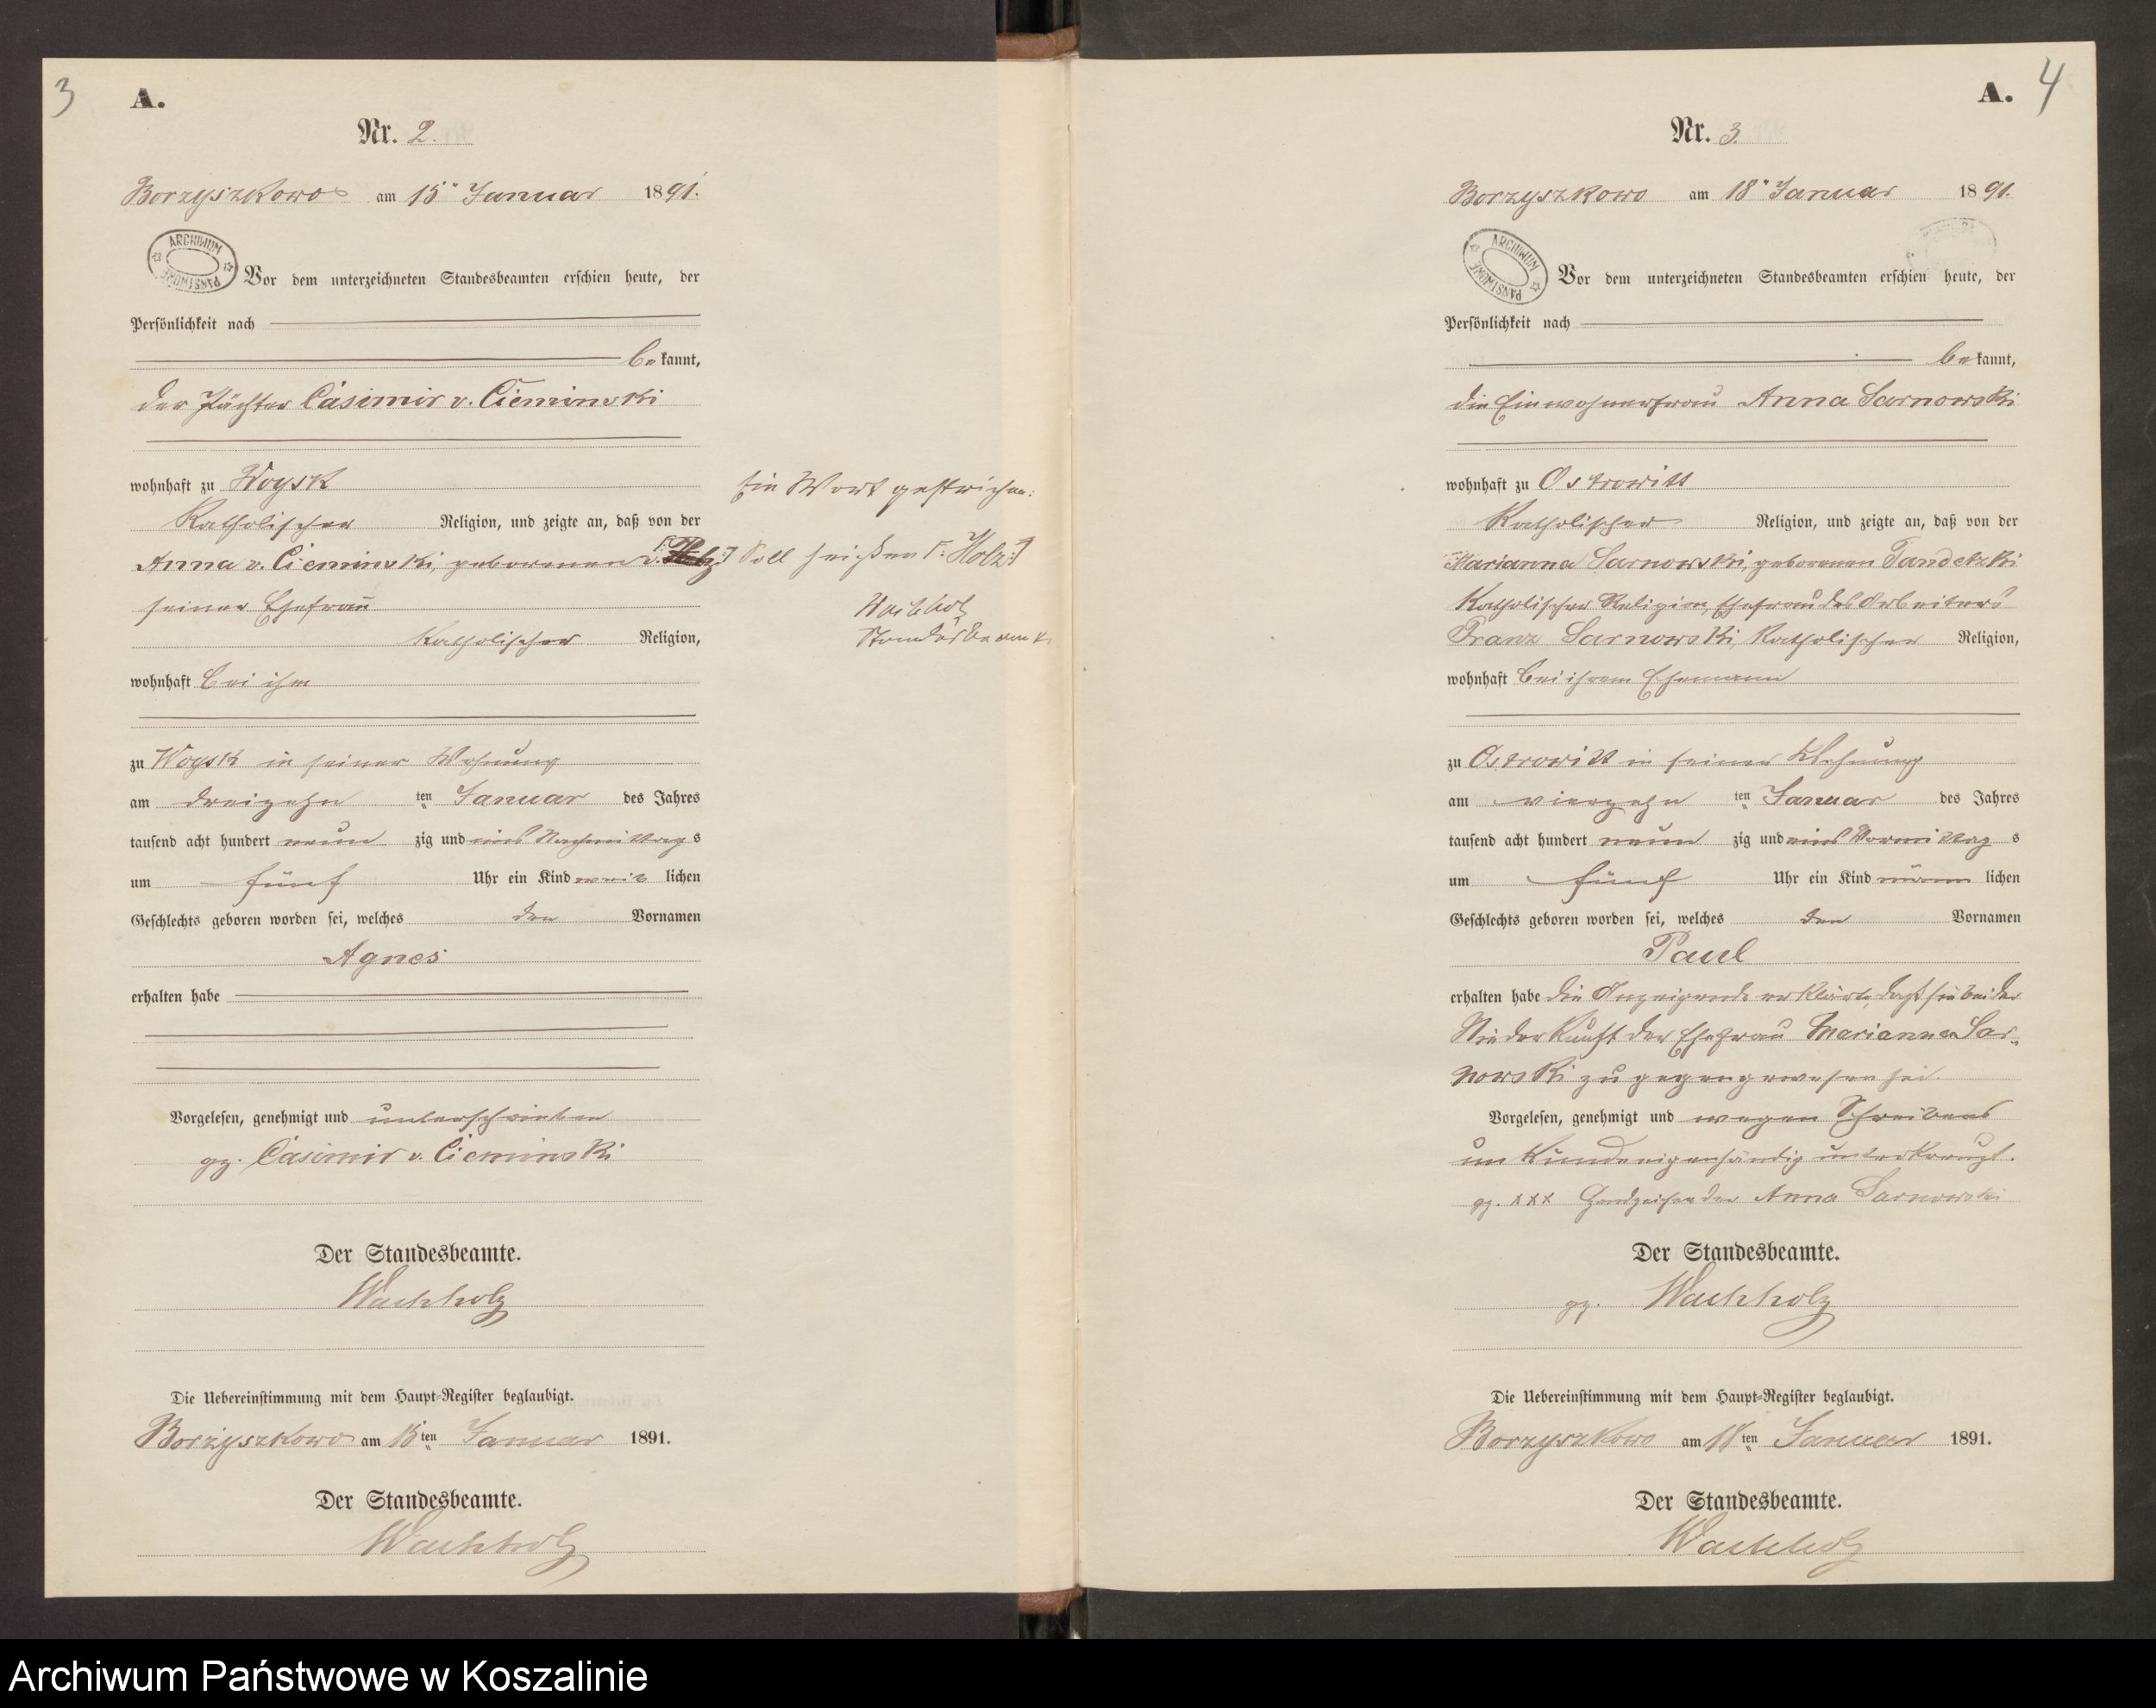 3
A.
Nr. 2.
Borzyszkowo am 15ᵗ Januar 1891.
ARCHIWUM PAŃSTWOWE
Vor dem unterzeichneten Standesbeamten erschien heute, der
Persönlichkeit nach
bekannt,
der Pächter Casimir v. Cieminski
wohnhaft zu Woysk
Katholischer Religion, und zeigte an, daß von der
Anna v. Cieminski, geborenen
seiner Ehefrau
Katholischer Religion,
wohnhaft bei ihm
zu Woysk in seiner Wohnung
am dreizehn ten Januar des Jahres
tausend acht hundert neun zig und eins Nachmittags
um fünf Uhr ein Kind weiblichen
Geschlechts geboren worden sei, welches den Vornamen
Agnes
erhalten habe
Vorgelesen, genehmigt und unterschrieben
gz. Casimir v. Cieminski
Der Standesbeamte.
Wachholz
Die Uebereinstimmung mit dem Haupt-Register beglaubigt.
Borzyszkowo am 15ten Januar 1891.
Der Standesbeamte.
Wachholz
Ein Wort gestrichen:
Soll heißen [: Holz :]
Wachholz
Standesbeamte
A.
4
Nr. 3.
Borzyszkowo am 18ᵗ Januar 1891.
ARCHIWUM PAŃSTWOWE
Vor dem unterzeichneten Standesbeamten erschien heute, der
Persönlichkeit nach
bekannt,
die Einwohnerfrau Anna Sarnowski
wohnhaft zu Ostrowitt
Katholischer Religion, und zeigte an, daß von der
Marianna Sarnowski, geborenen Tandetzki
Katholischer Religion, Ehefrau des Arbeiters
Franz Sarnowski, Katholischer Religion,
wohnhaft bei ihrem Ehemann
zu Ostrowitt in seiner Wohnung
am vierzehn ten Januar des Jahres
tausend acht hundert neun zig und eins Vormittags
um fünf Uhr ein Kind männlichen
Geschlechts geboren worden sei, welches den Vornamen
Paul
erhalten habe die Anzeigende erklärte, daß sie bei der
Niederkunft der Ehefrau Marianna Sar-
nowski zugegengewesen sei.
Vorgelesen, genehmigt und wegen Schreibens
unkunde eigenhändig unterkreuzt.
gz. xxx Handzeichen der Anna Sarnowski
Der Standesbeamte.
gz. Wachholz
Die Uebereinstimmung mit dem Haupt-Register beglaubigt.
Borzyszkowo am 18ten Januar 1891.
Der Standesbeamte.
Wachholz
Archiwum Państwowe w Koszalinie